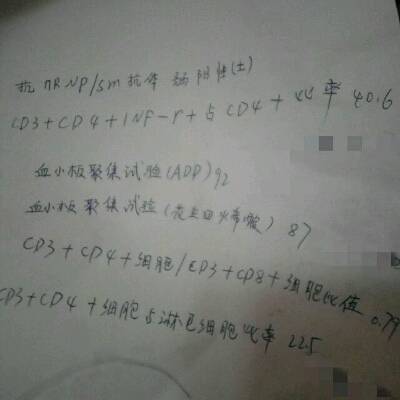 抗nRNP/sm抗体 弱阳性(±)
CD3+CD4+INF-r+与CD4+比率 40.6
血小板聚集试验(ADP)92
血小板聚集试验(花生四烯酸)87
CD3+CD4+细胞/CD3+CD8+细胞比值 0.79
CD3+CD4+细胞与淋巴细胞比率 22.5